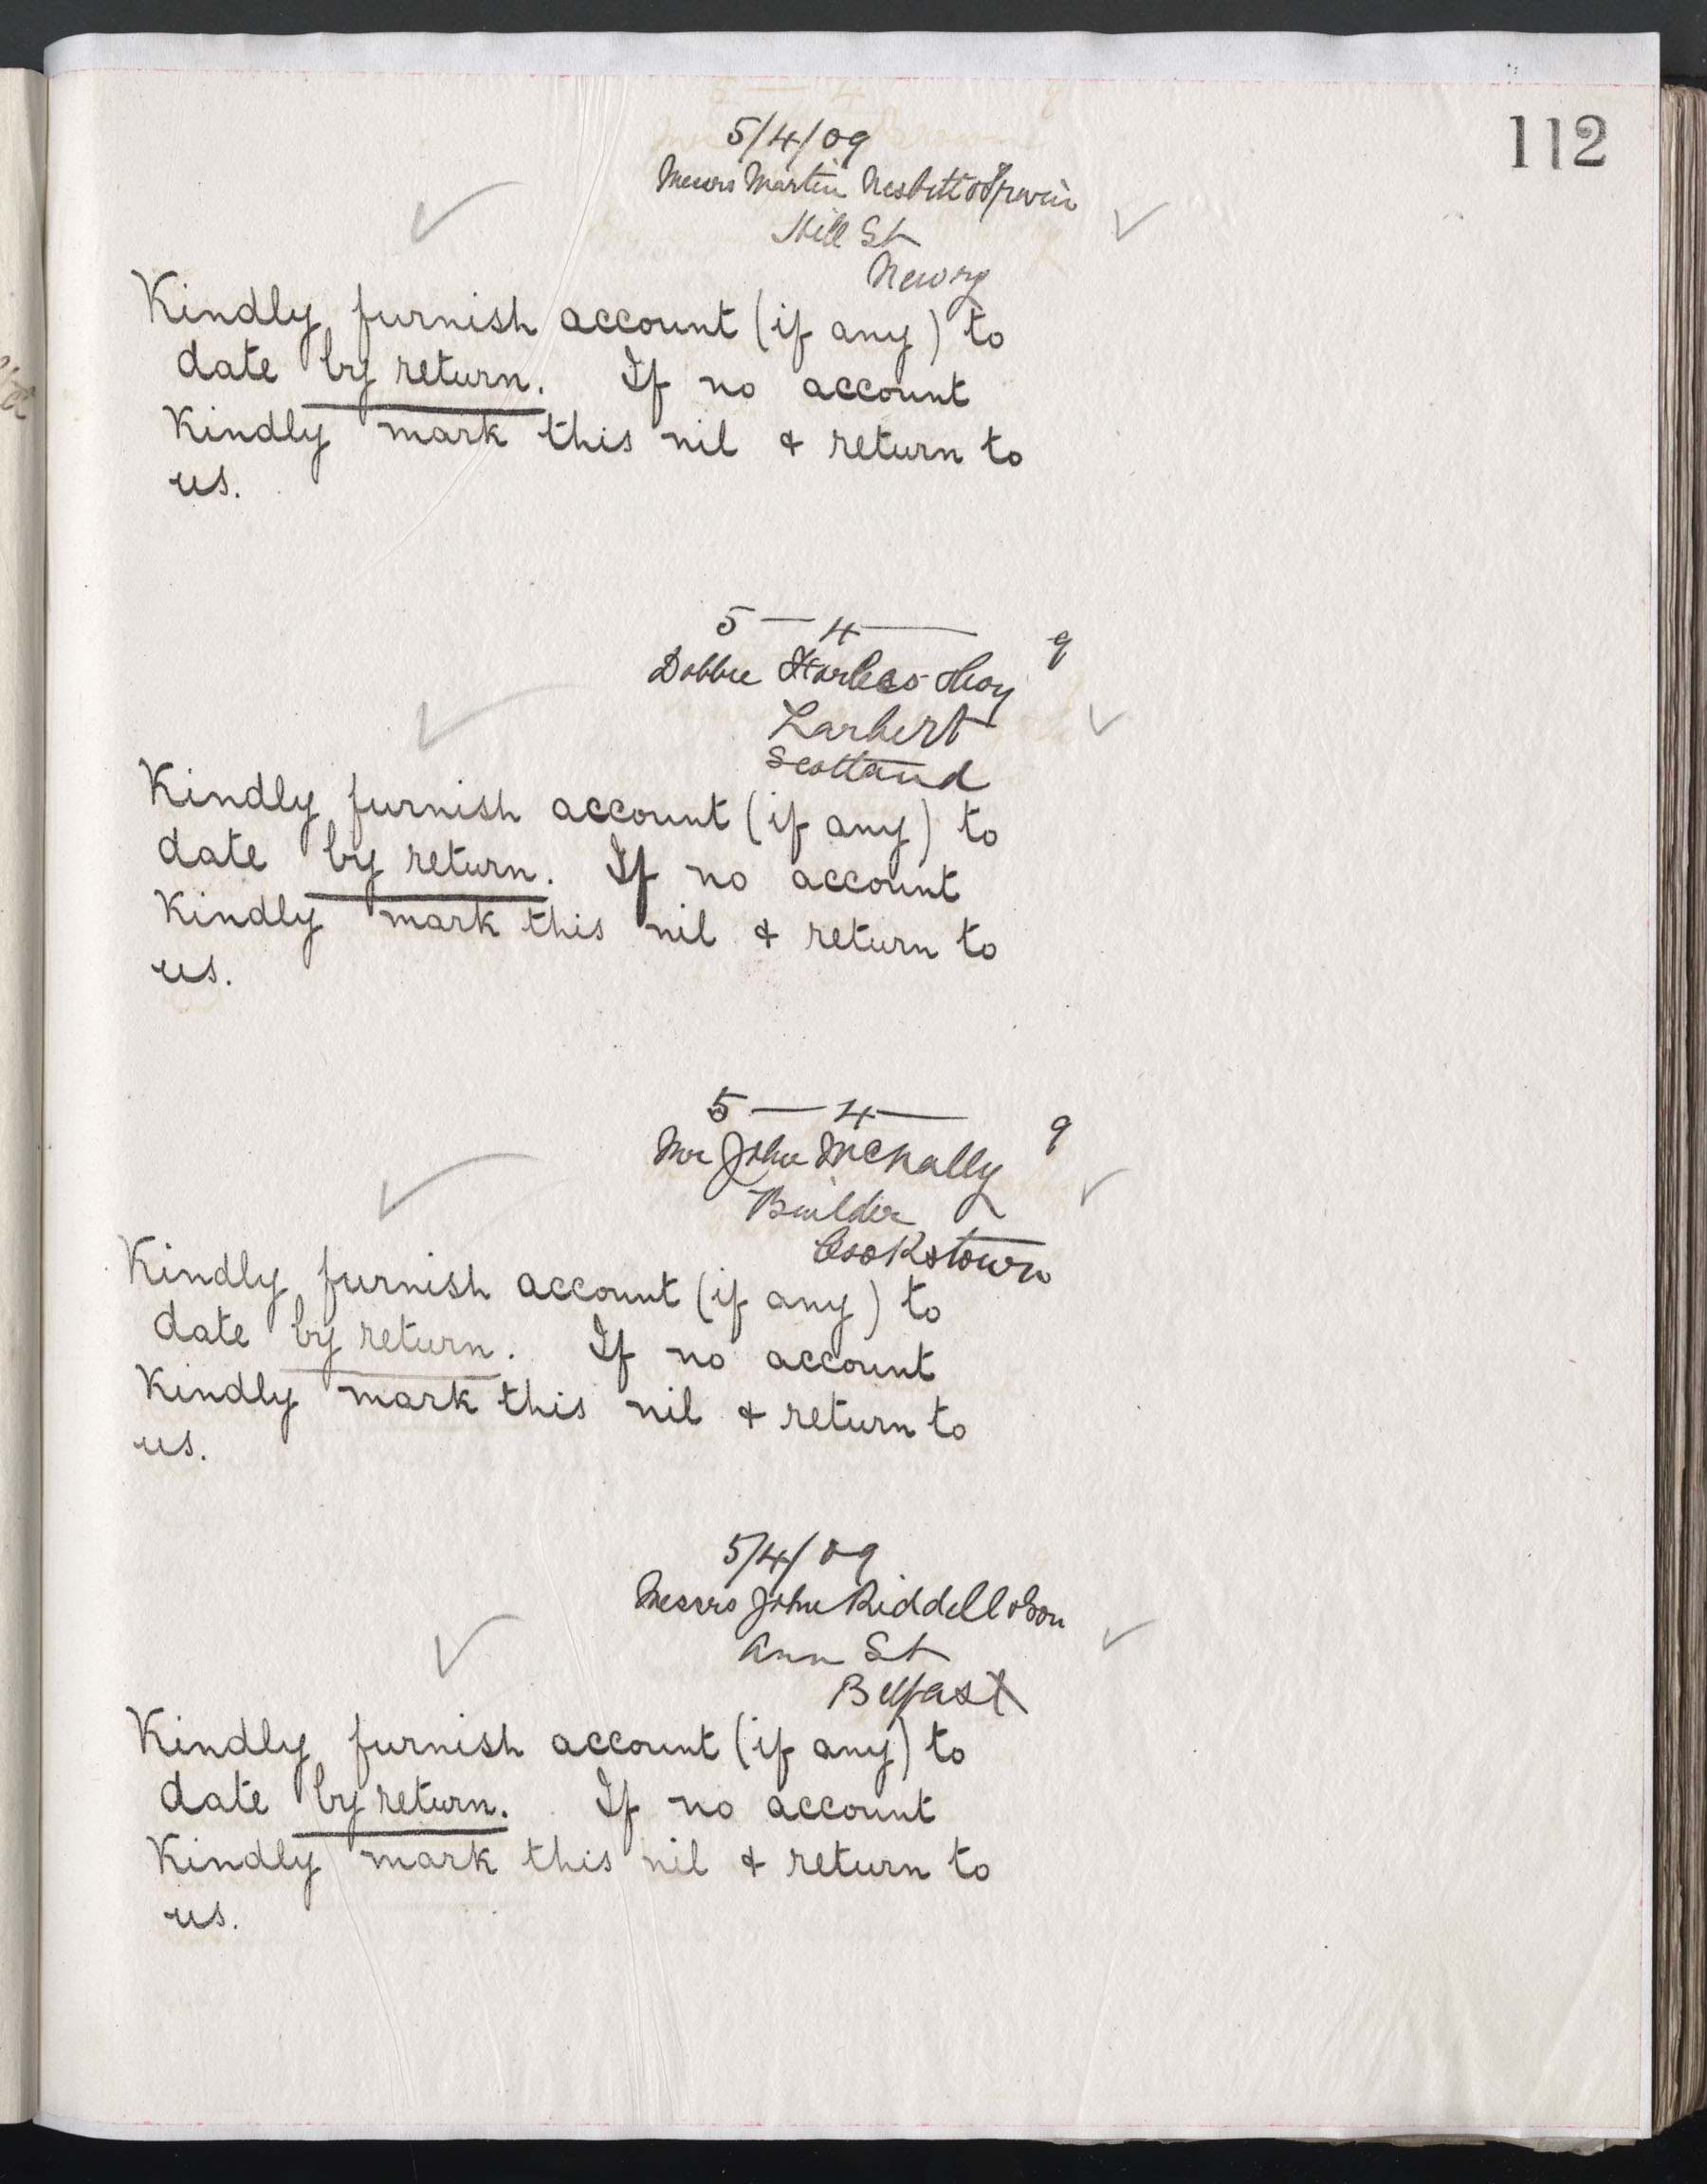 112
5/4/09
Messrs Martin Nesbitt & Irwin
Hill St
Newry
Kindly furnish account (if any) to
date by return. If no account
Kindly mark this nil & return to
us.
5 — 4 — 9
Dobbie
Larbert
Scotland
Kindly furnish account (if any) to
date by return. If no account
Kindly mark this nil & return to
us.
5 — 4 — 9
Mr John McNally
Builder
Cookstown
Kindly furnish account (if any) to
date by return. If no account
Kindly mark this nil & return to
us.
5/4/09
Messrs John Riddell & Son
Ann St
Belfast
Kindly furnish account (if any) to
date by return. If no account
Kindly mark this nil & return to
us.